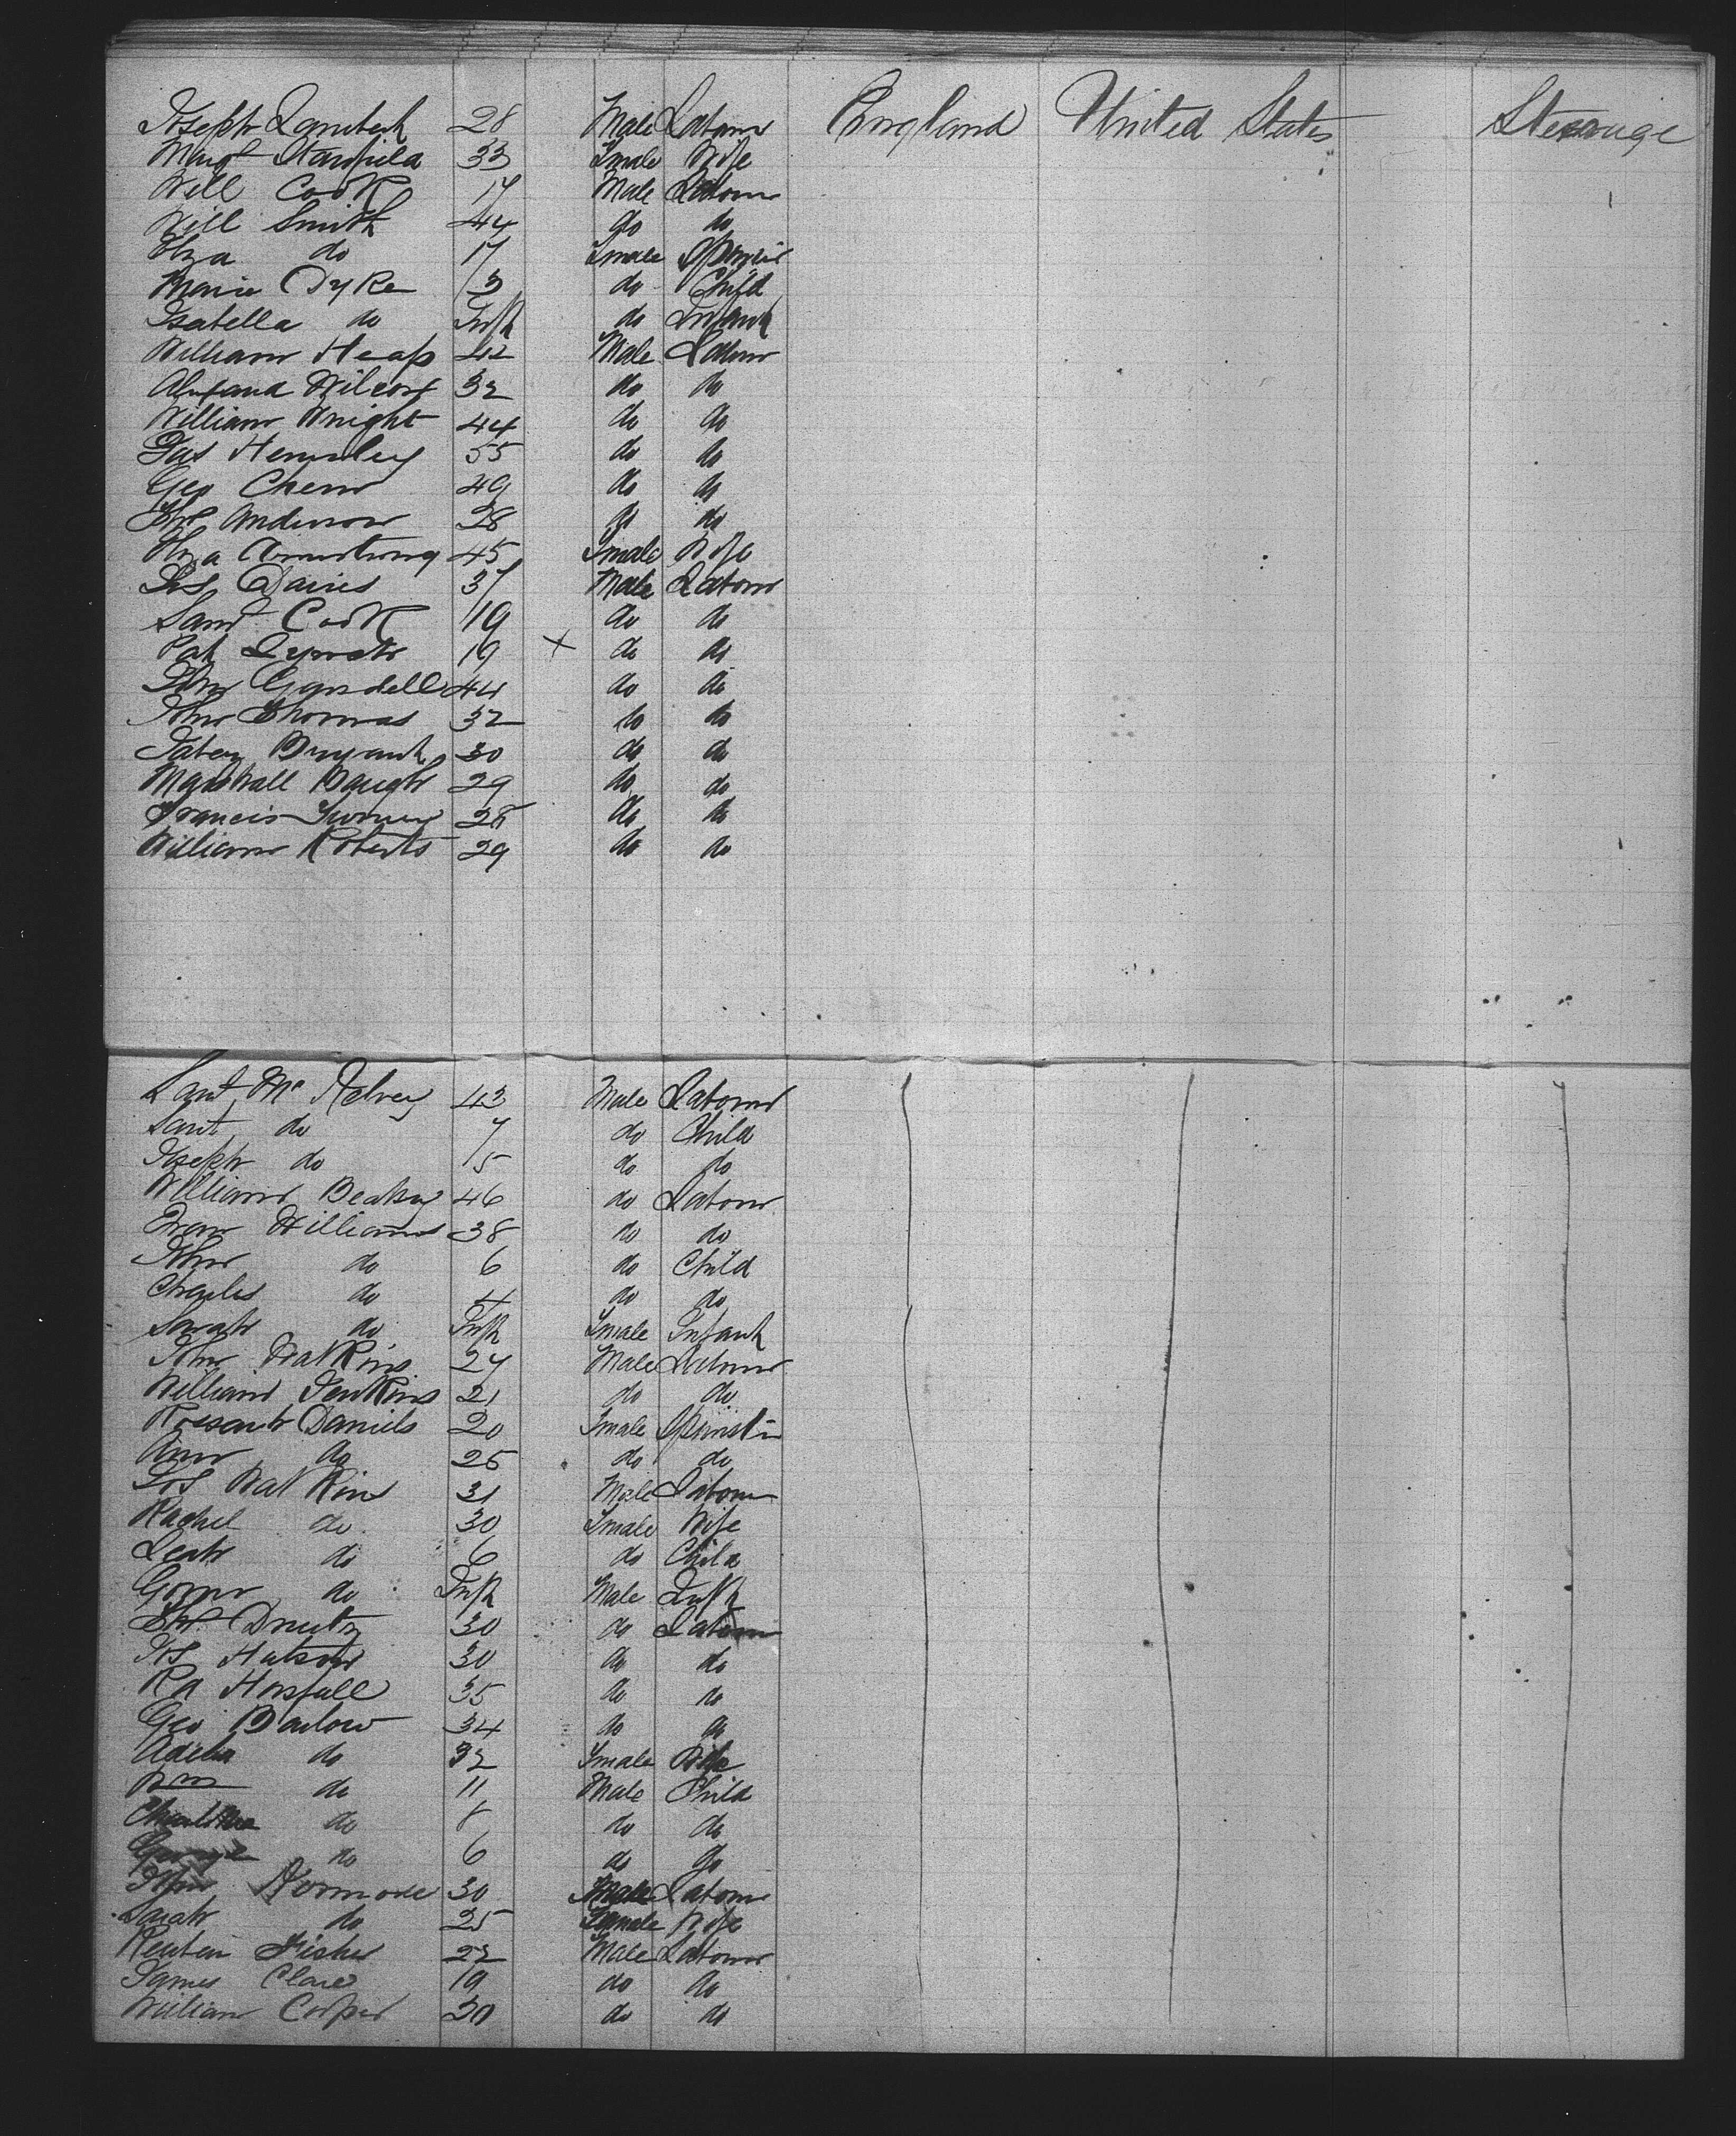 Joseph Lambert 28 Male Labour England United States Steerage
Margt Stanfield 33 Fmale Wife
Will Cook 17 Male Labour
Will Smith 44 do do
Elza do 17 Fmale Spinster
Marie Dyke 3 do Child
Isabella do Inft do Infant
William Heap 42 Male Labour
Wilcox 32 do do
William Wright 44 do do
Jas Hemsley 55 do do
Geo 49 do do
Thos Anderson 28 do do
Elza Armstrong 45 Fmale Wife
Jos Davies 37 Male Labour
Saml Cook 19 do do
Pat Lynch 19 × do do
John 44 do do
John Thomas 32 do do
Jabez Bryant 30 do do
Marshall 29 do do
Francis 28 do do
William Roberts 29 do do
Saml Mc Kelvey 43 Male Labour
Saml do 7 do Child
Joseph do 5 do do
William 46 do Labour
Evan Williams 38 do do
John do 6 do Child
Charles do 4 do do
Sarah do Inft Fmale Infant
John Watkins 27 Male Labour
William Jenkins 21 do do
Daniels 20 Fmale Spinster
Ann do 25 do do
Jos Watkins 31 Male Labour
Rachel do 30 Fmale Wife
Leah do 6 do Child
do Inft Male Inft
Thos 30 do Labour
Jos 30 do do
Rd Horsfall 35 do do
Geo Barlow 34 do do
Adelia do 32 Fmale Wife
Wm do 11 Male Child
do 8 do do
George do 6 do do
John Kormode 30 Male Labour
Sarah do 25 Female Wife
Reuben Fisher 22 Male Labour
James Clare 19 do do
William Cooper 20 do do